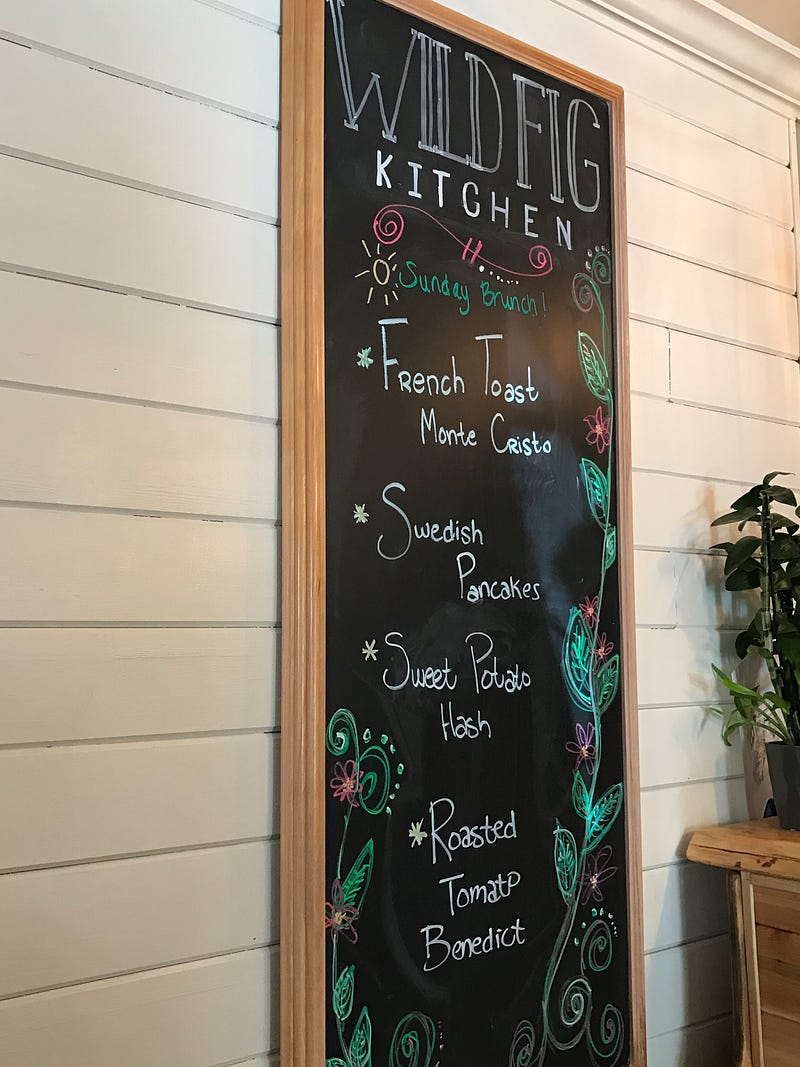 WILD FIG
KITCHEN
Sunday Brunch!
* French Toast
Monte Cristo
* Swedish
Pancakes
* Sweet Potato
Hash
* Roasted
Tomato
Benedict